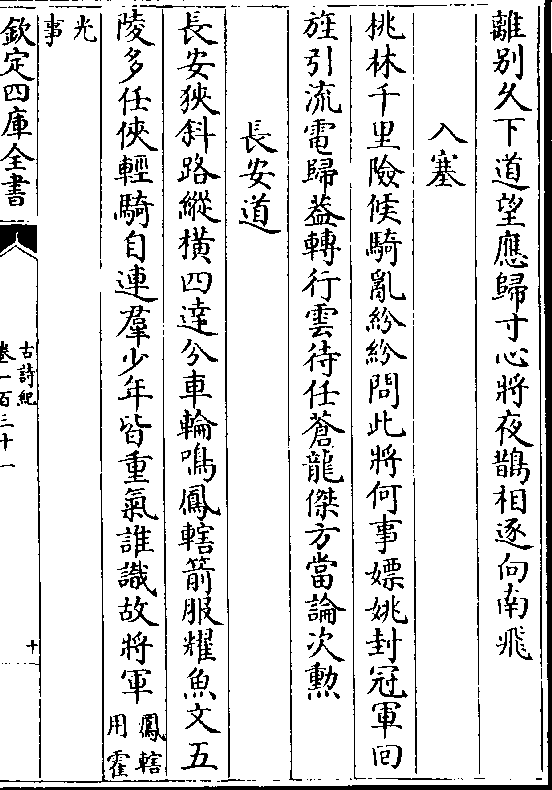 離别久下道望應歸寸心將夜鵲相逐向南飛
入塞
桃林千里險候騎亂紛紛問此將何事嫖姚封冠軍回
旌引流電歸葢轉行雲待任蒼龍傑方當論次勲
長安道
長安狹斜路縱橫四逹分車輪鳴鳳轄箭服耀魚文五
陵多任俠輕騎自連羣少年皆重氣誰識故將軍 鳳轄
用霍
光
事
欽定四庫全書
古詩紀
卷一百三十一
十